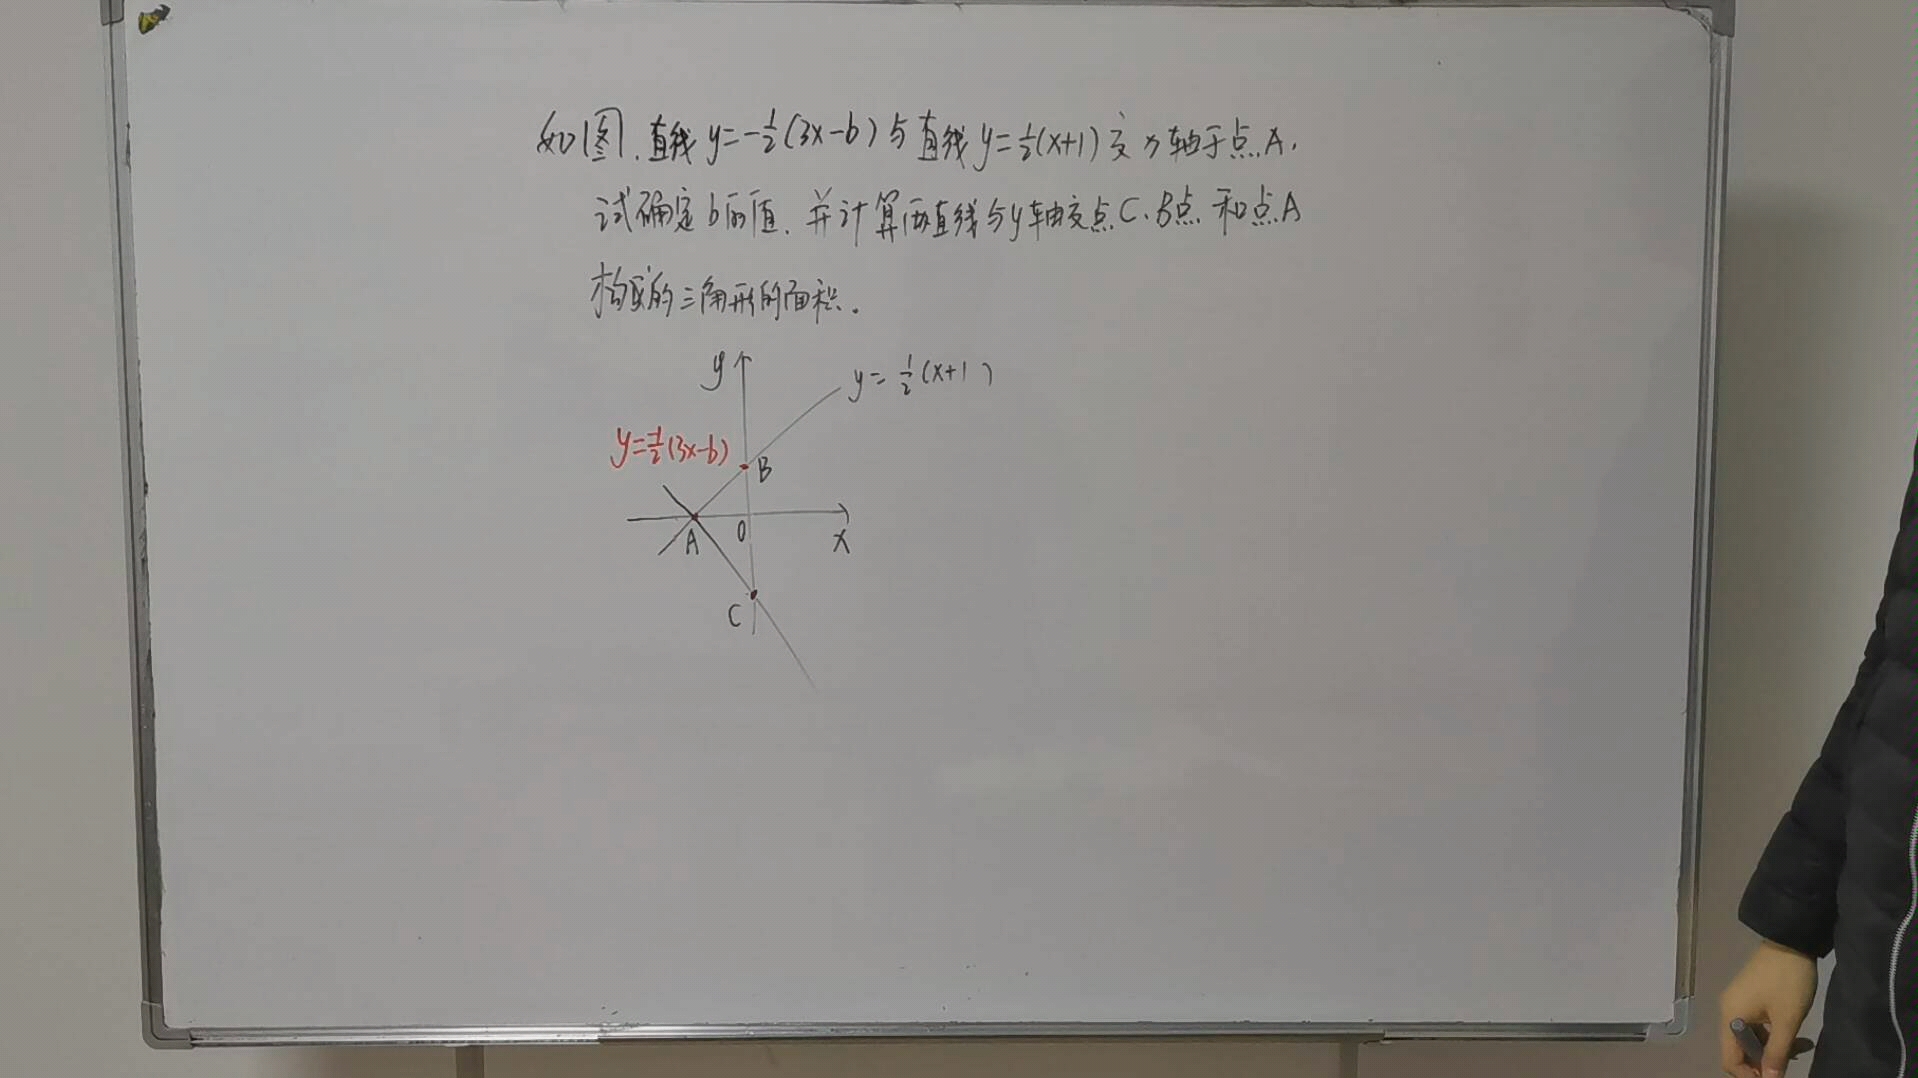 如图.直线y=-1/2(3x-b)与直线y=1/2(x+1)交x轴于点A.
试确定b的值.并计算两直线与y轴交点C、B点和点A
构成的三角形的面积.
y
y=1/2(x+1)
y=-1/2(3x-b)
B
A
O
x
C